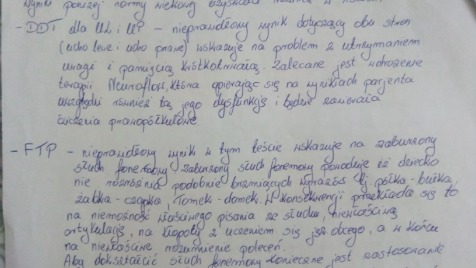 Wyniki poniżej normy wiekowej uzyskała
- DDT dla UL i UP - nieprawidłowy wynik dotyczący obu stron
(ucho lewe i ucho prawe) wskazuje na problem z utrzymaniem
uwagi i pamięcią krótkotrwałą. Zalecane jest wdrożenie
terapii Neuroflow, która opierając się na wynikach pacjenta
uwzględni również tą jego dysfunkcję i będzie zawierała
ćwiczenia prawopółkulowe.
- FTP - nieprawidłowy wynik w tym teście wskazuje na zaburzony
słuch fonemowy, zaburzony słuch fonemowy powoduje iż dziecko
nie rozróżnia podobnie brzmiących wyrazów tj półka-bułka,
żabka-czapka, Tomek-domek. W konsekwencji przekłada się to
na niemożność właściwego pisania ze słuchu, niewłaściwą
artykulację, na kłopoty z uczeniem się jęz obcego, a w końcu
na niewłaściwe rozumienie poleceń.
Aby dokształcić słuch fonemowy konieczne jest zastosowanie